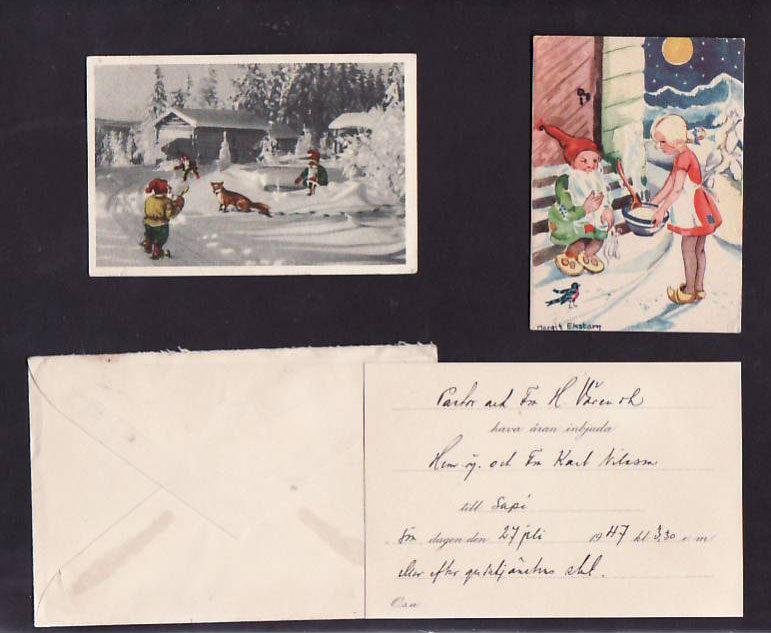 Margit Ekstam
Pastor och Fru H
hava äran inbjuda
Hem äg. och Fru Karl Nilsson
till Supé
dagen den 27 juli 1947 kl 3,30 e.m
eller efter gudstjänstens slut.
Osa